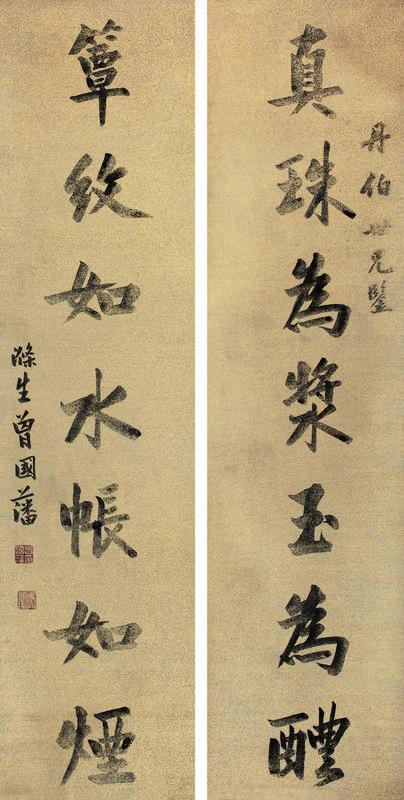 丹伯世兄鑒
真珠為漿玉為醴
簟紋如水帳如煙
滌生曾國藩